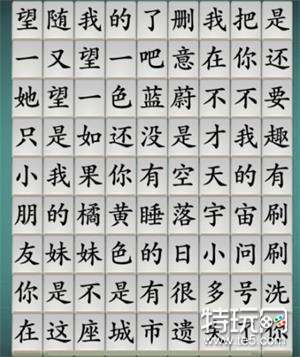 望随我的了删我把是
一又望一吧意在你还
她望一色蓝蔚不不要
只是如还没是才我趣
小我果你有空天的有
朋的橘黄睡落宇宙刷
友妹妹色的日小问刷
你是不是有很多号洗
在这座城市遗
特玩网
www.te5.com